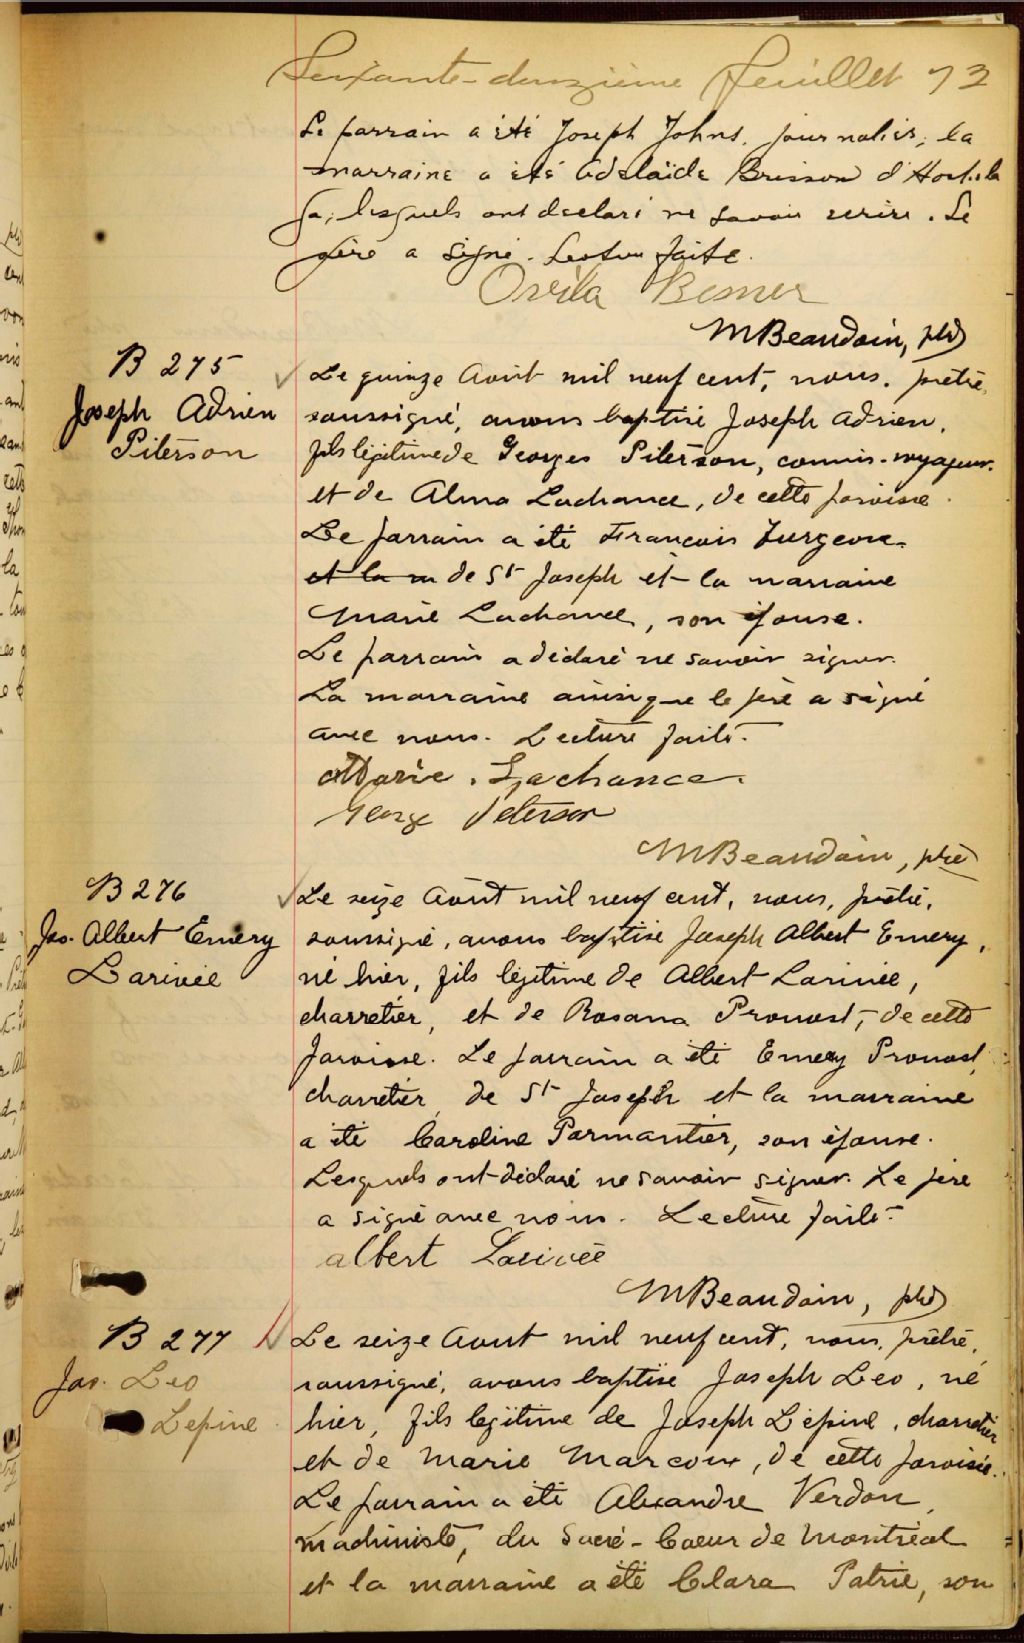 Soixante-douzième feuillet 72
Le parrain a été Joseph Johns, journalier, la
marraine a été Adelaïde Brisson d'Hochela
ga, lesquels ont declaré ne savoir ecrire. Le
père a signé. Lecture faite.
Ovila Besner
MBeaudoin, ptre
B 275
Joseph Adrien
Piterson
Le quinze Août mil neuf cent, nous, prêtre,
soussigné, avons baptisé Joseph Adrien,
fils légitime de Georges Piterson, commis-voyageur
et de Alma Lachance, de cette paroisse.
Le parrain a été François Turgeon
et la m de St Joseph et la marraine
Marie Lachance, son épouse.
Le parrain a déclaré ne savoir signer.
La marraine ainsi que le père a signé
avec nous. Lecture faite.
Marie Lachance.
George Peterson
MBeaudoin, ptre
B 276
Jos. Albert Emery
Larivée
Le seize Août mil neuf cent, nous, prêtre,
soussigné, avons baptisé Joseph Albert Emery,
né hier, fils légitime de Albert Larivée,
charretier, et de Rosana Provost, de cette
paroisse. Le parrain a été Emery Provost,
charretier, de St Joseph et la marraine
a été Caroline Parmantier, son épouse.
Lesquels ont déclaré ne savoir signer. Le père
a signé avec nous. Lecture faite.
albert Larivée
MBeaudoin, ptre
B 277
Jos. Leo
Lepine
Le seize Aout mil neuf cent, nous, prêtre,
soussigné, avons baptisé Joseph Leo, né
hier, fils legitime de Joseph Lépine, charretier
et de Marie Marcoux, de cette paroisse.
Le parrain a été Alexandre Verdon,
machiniste, du Sacré-Coeur de Montréal
et la marraine a été Clara Patrie, son